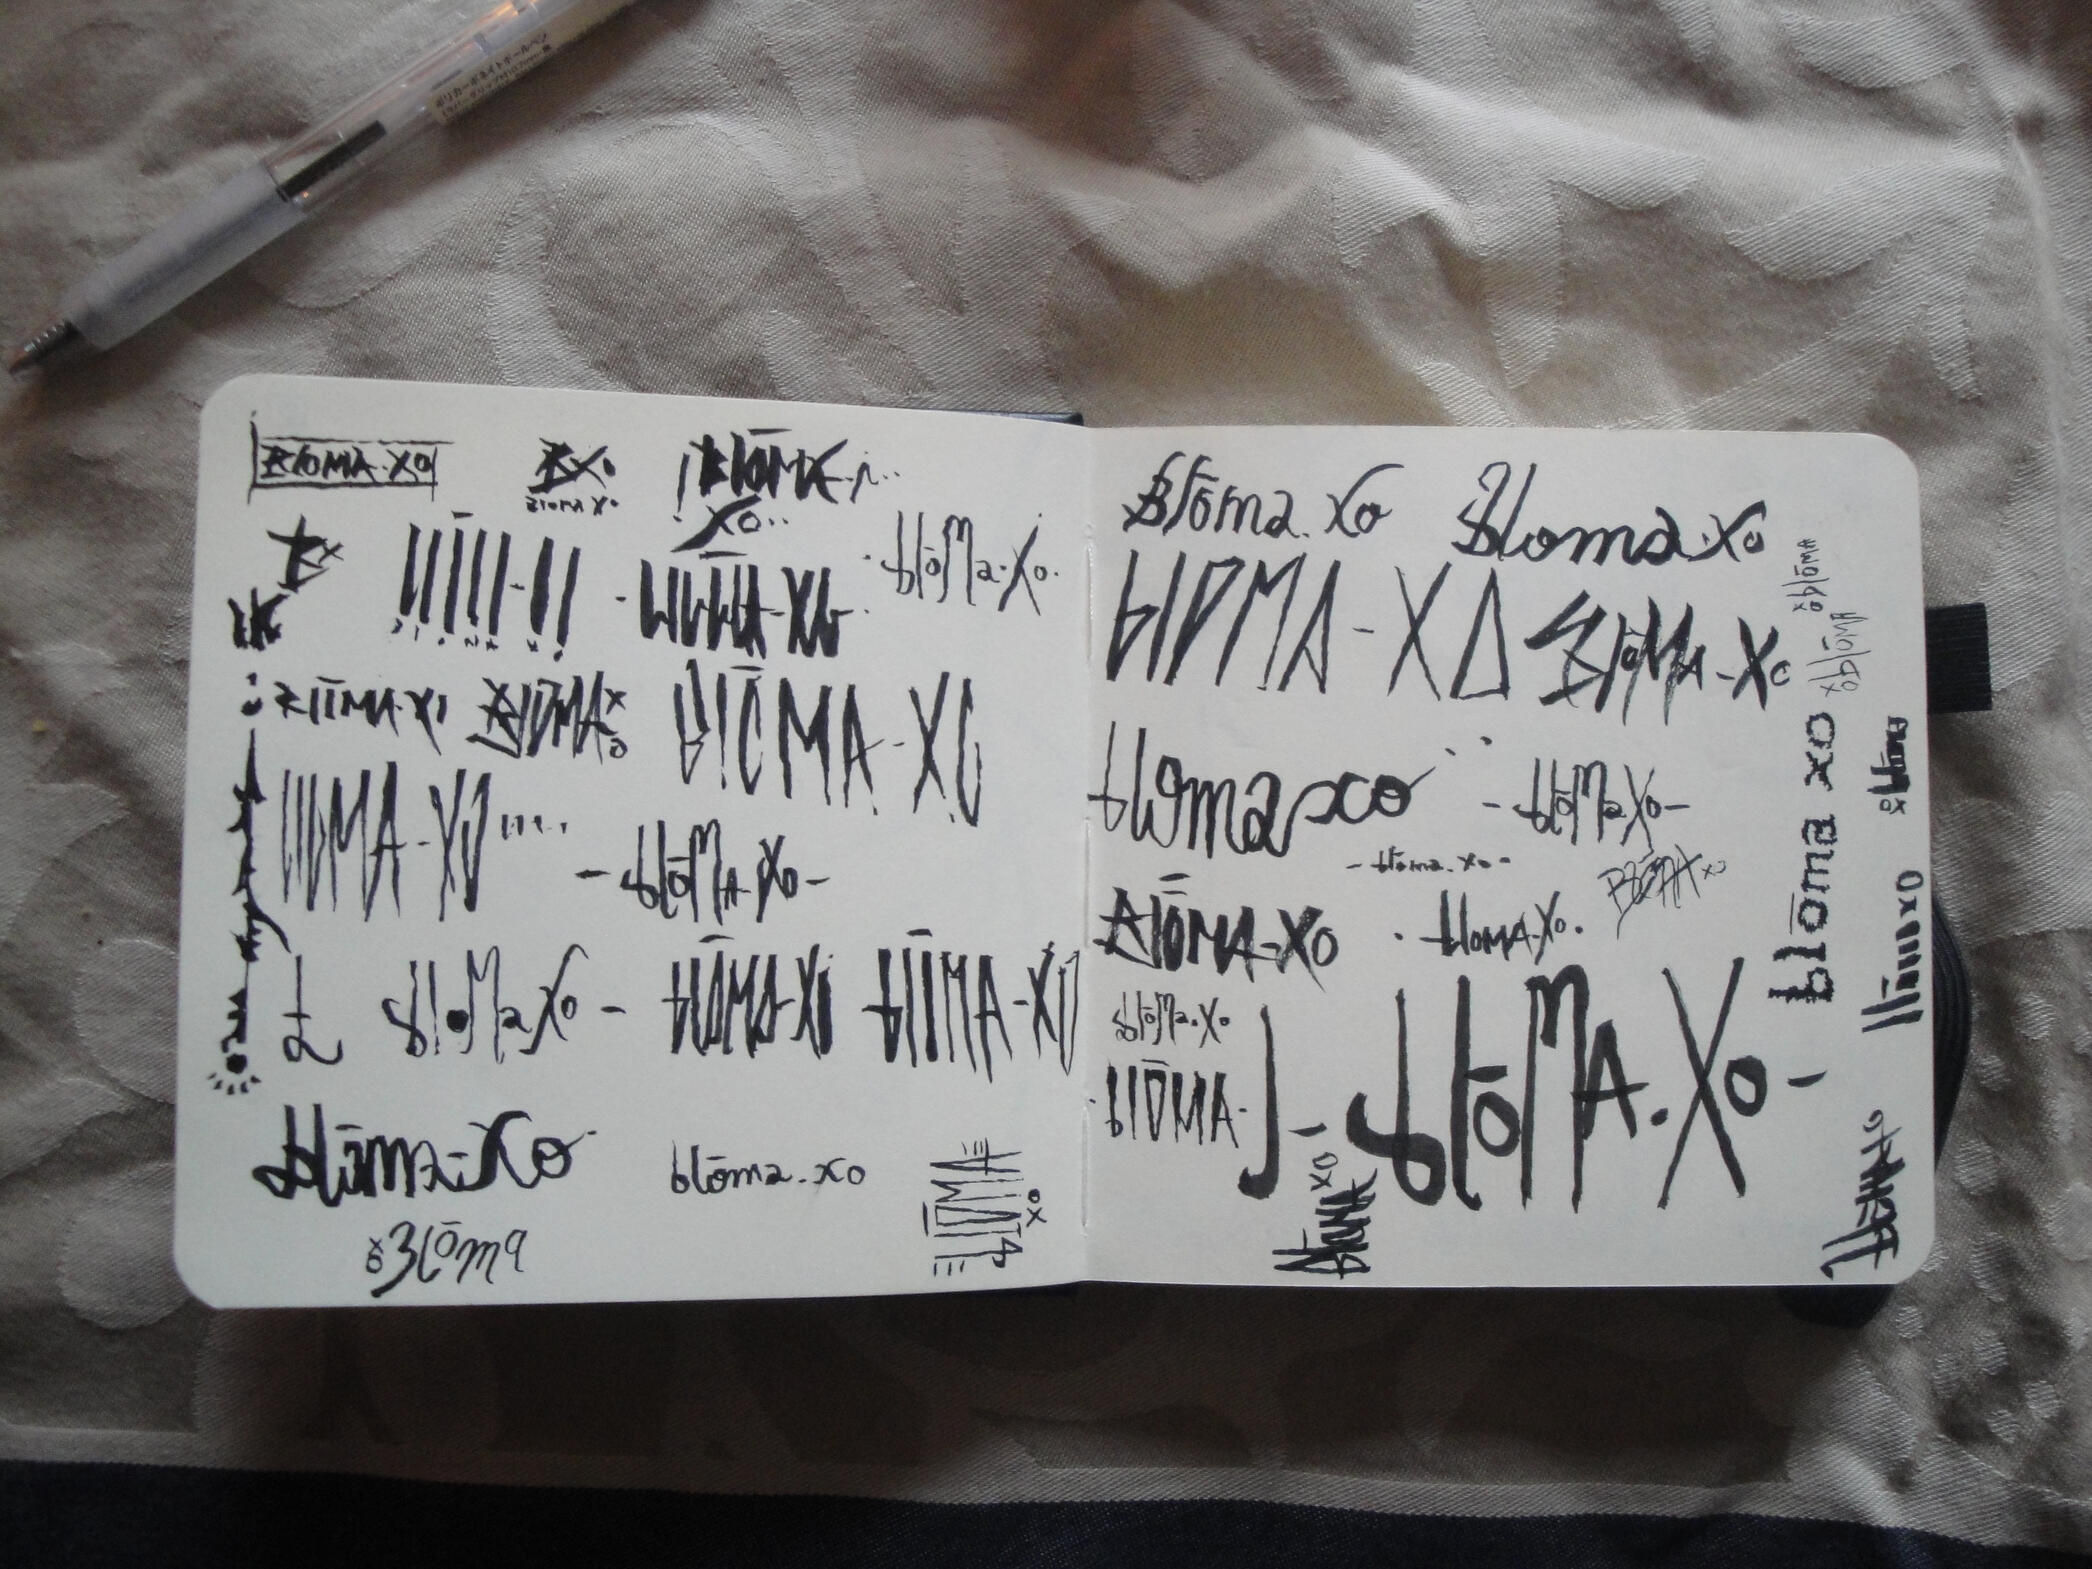 BlōMA-XO
BXO
BlOMA XO
BlōMA
XO
blōMa.Xo.
BlōMA XO
BlōMA-XO
BlOMA-XO
-blōMA.Xo-
bloMa Xo -
blōMA-XO
blōMA-XO
blōma-Xo
blōma.xo
xo Blōma
BlōMA xo
Blōma.Xo
Bloma.Xo
blOMA-XO
BlōMA-Xo
blomaxo
-blōMa.Xo-
-blōma.xo-
BlōMA xo
BlōMA-XO
.bloMA.Xo.
bloMa.Xo
blōMA-
-blōMA.Xo-
blōMA XO
xo blōMA
xo blōMA
blōma xo
xo blōma